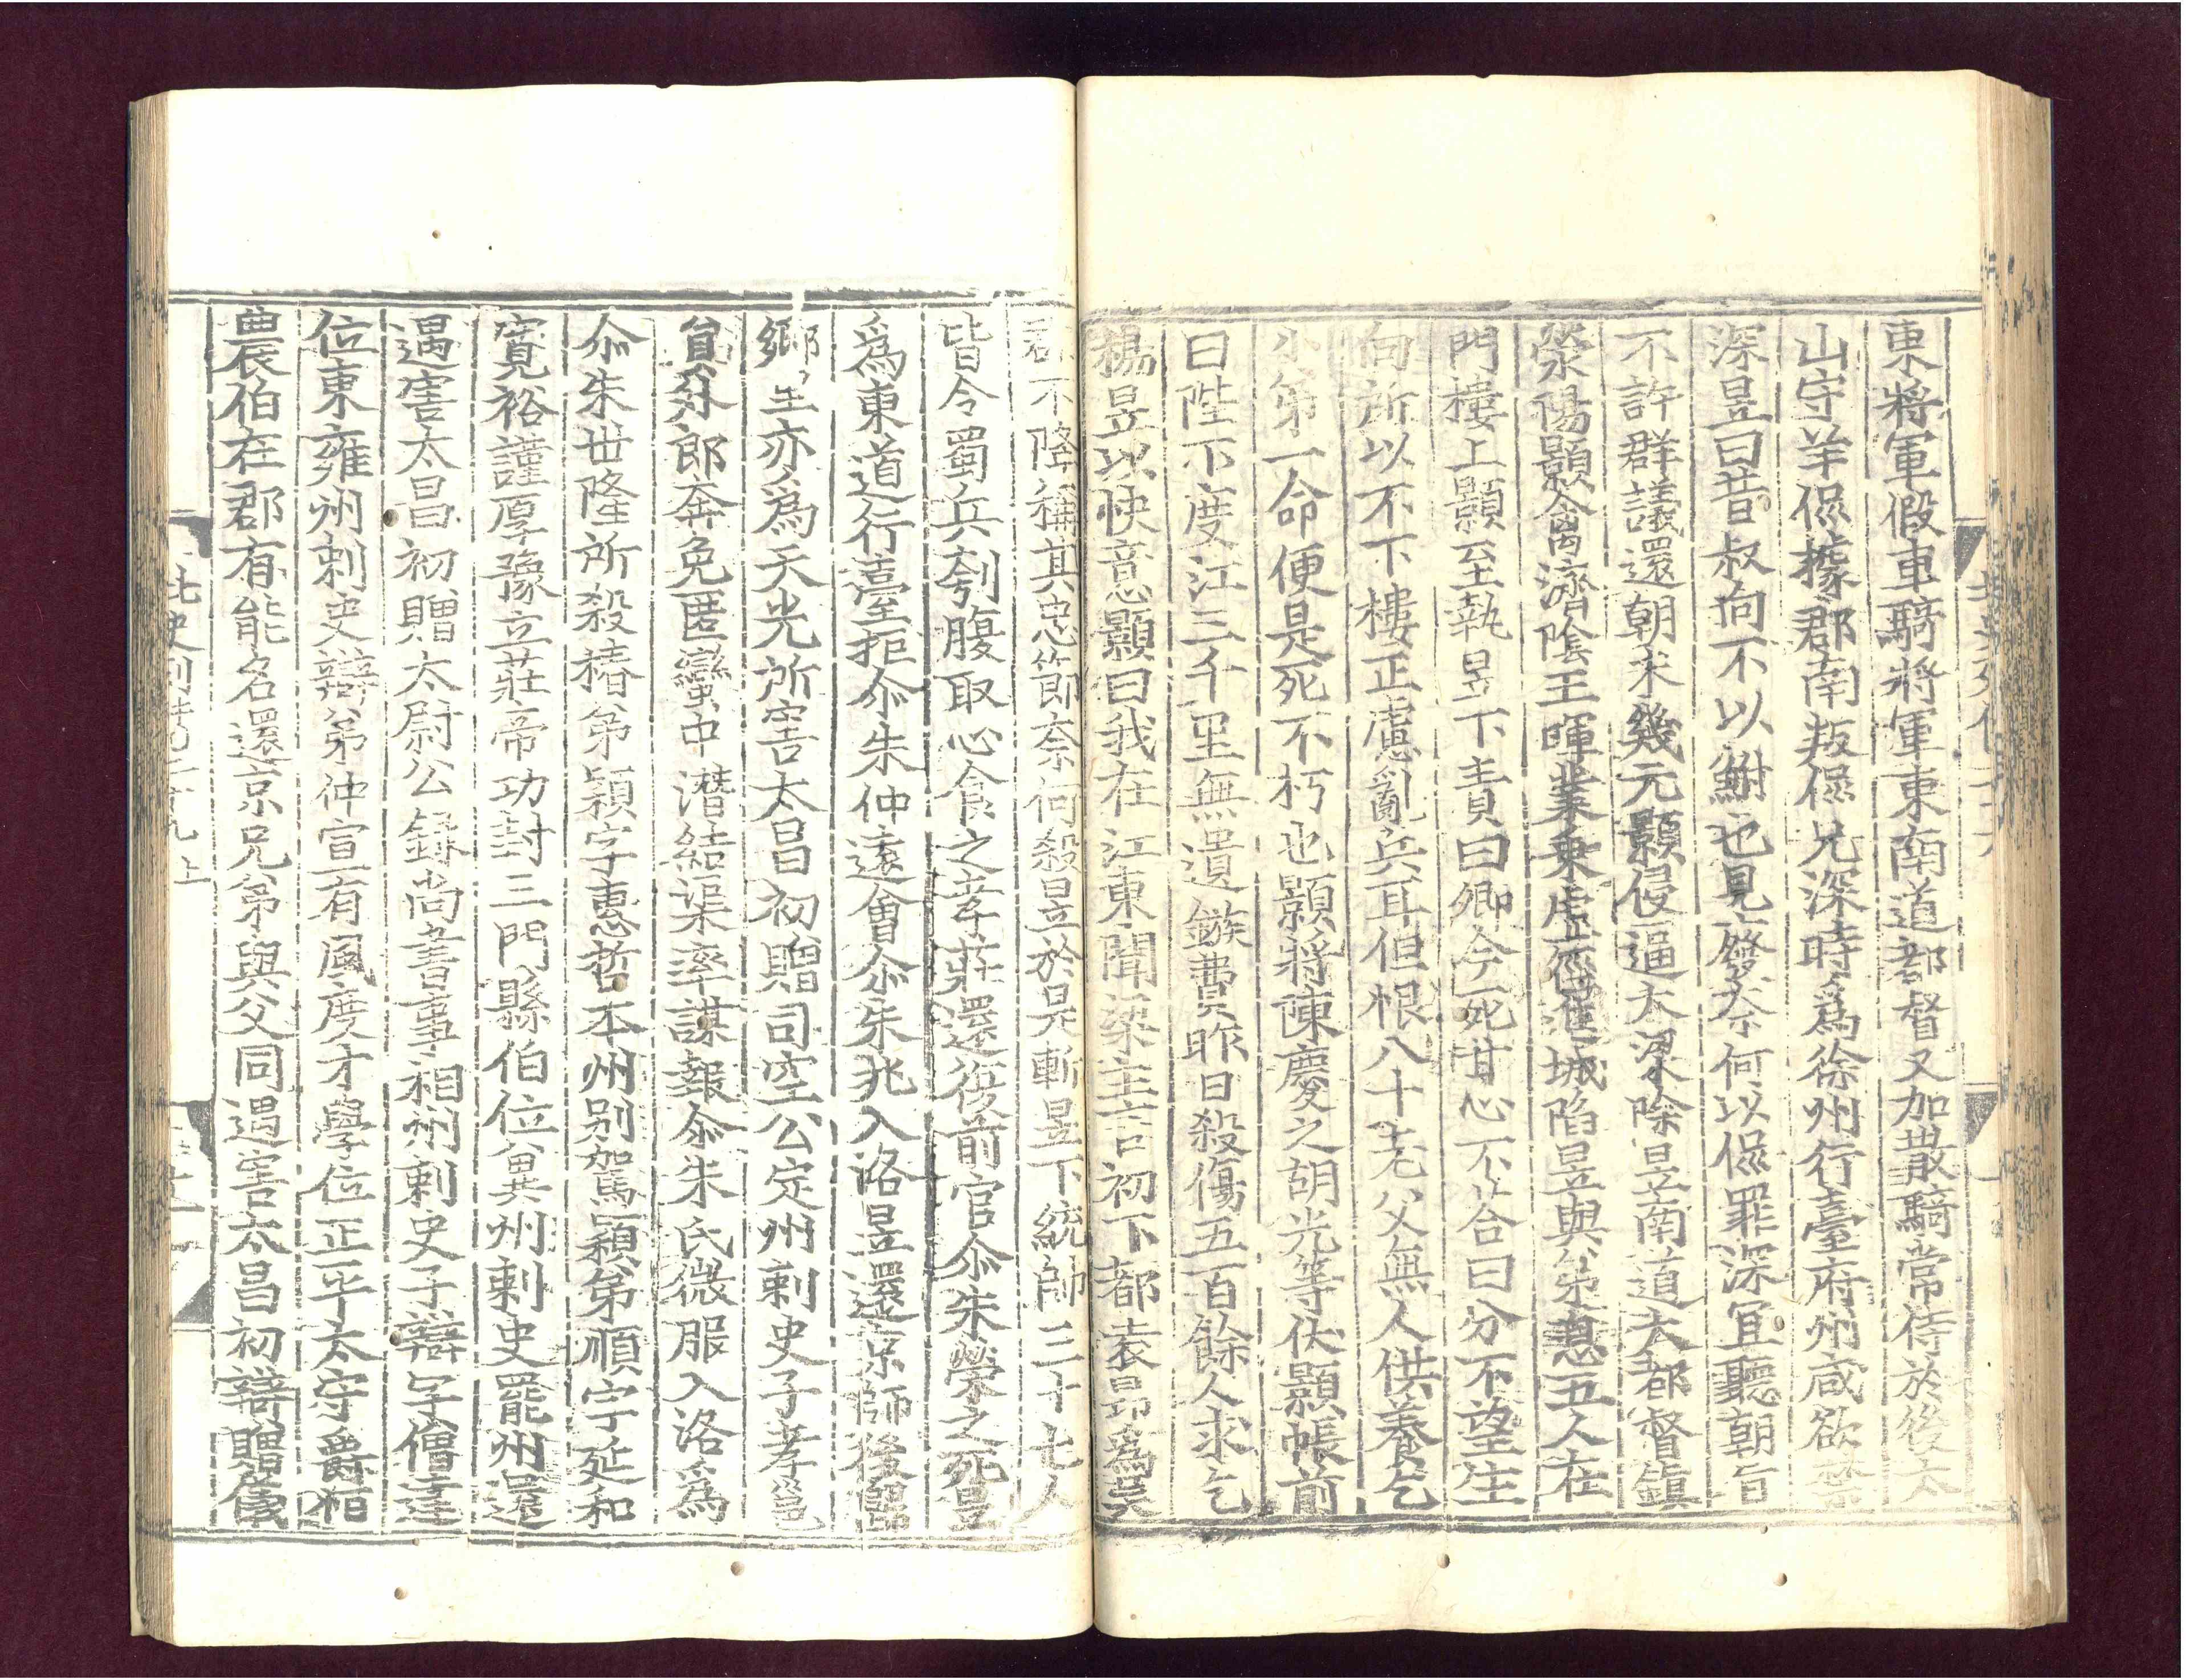 東將軍假車騎將軍東南道都督又加散騎常侍於後太
山守羊侃據郡南叛侃兄深時爲徐州行臺府州咸欲禁
深昱曰昔叔向不以鮒也見癈奈何以侃罪深宜聽朝旨
不許群議還朝未幾元顥侵逼大梁除昱南道大都督鎮
滎陽顥禽濟陰王暉業乗虛徑進城陷昱與弟息五人在
門樓上顥至執昱下責曰卿今死甘心不荅曰分不望生
向所以不下樓正慮亂兵耳但恨八十老父無人供養乞
小弟一命便是死不朽也顥將陳慶之胡光等伏顥帳前
曰陛下度江三千里無遺鏃費昨日殺傷五百餘人求乞
楊昱以快意顥曰我在江東聞梁主言初下都袁昻爲吴
郡不降稱其忠節奈何殺昱於是斬昱下統帥三十七人
皆令蜀兵刳腹取心食之孝莊還復前官尒朱榮之死昱
爲東道行臺拒尒朱仲遠會尒朱兆入洛昱還京師後歸
鄉里亦爲天光所害太昌初贈司空公定州刺史子孝邕
貟外郎奔免匿蠻中潛結渠率謀報尒朱氏微服入洛爲
尒朱世隆所殺椿弟穎字惠哲本州别駕穎弟順字延和
寛裕謹厚豫立莊帝功封三門縣伯位兾州刺史罷州還
遇害太昌初贈太尉公録尚書事相州刺史子辯字僧達
位東雍州刺史辯弟仲宣有風度才學位正平太守爵恒
農伯在郡有能名還京兄弟與父同遇害太昌初辯贈儀
北史列傳二十九上